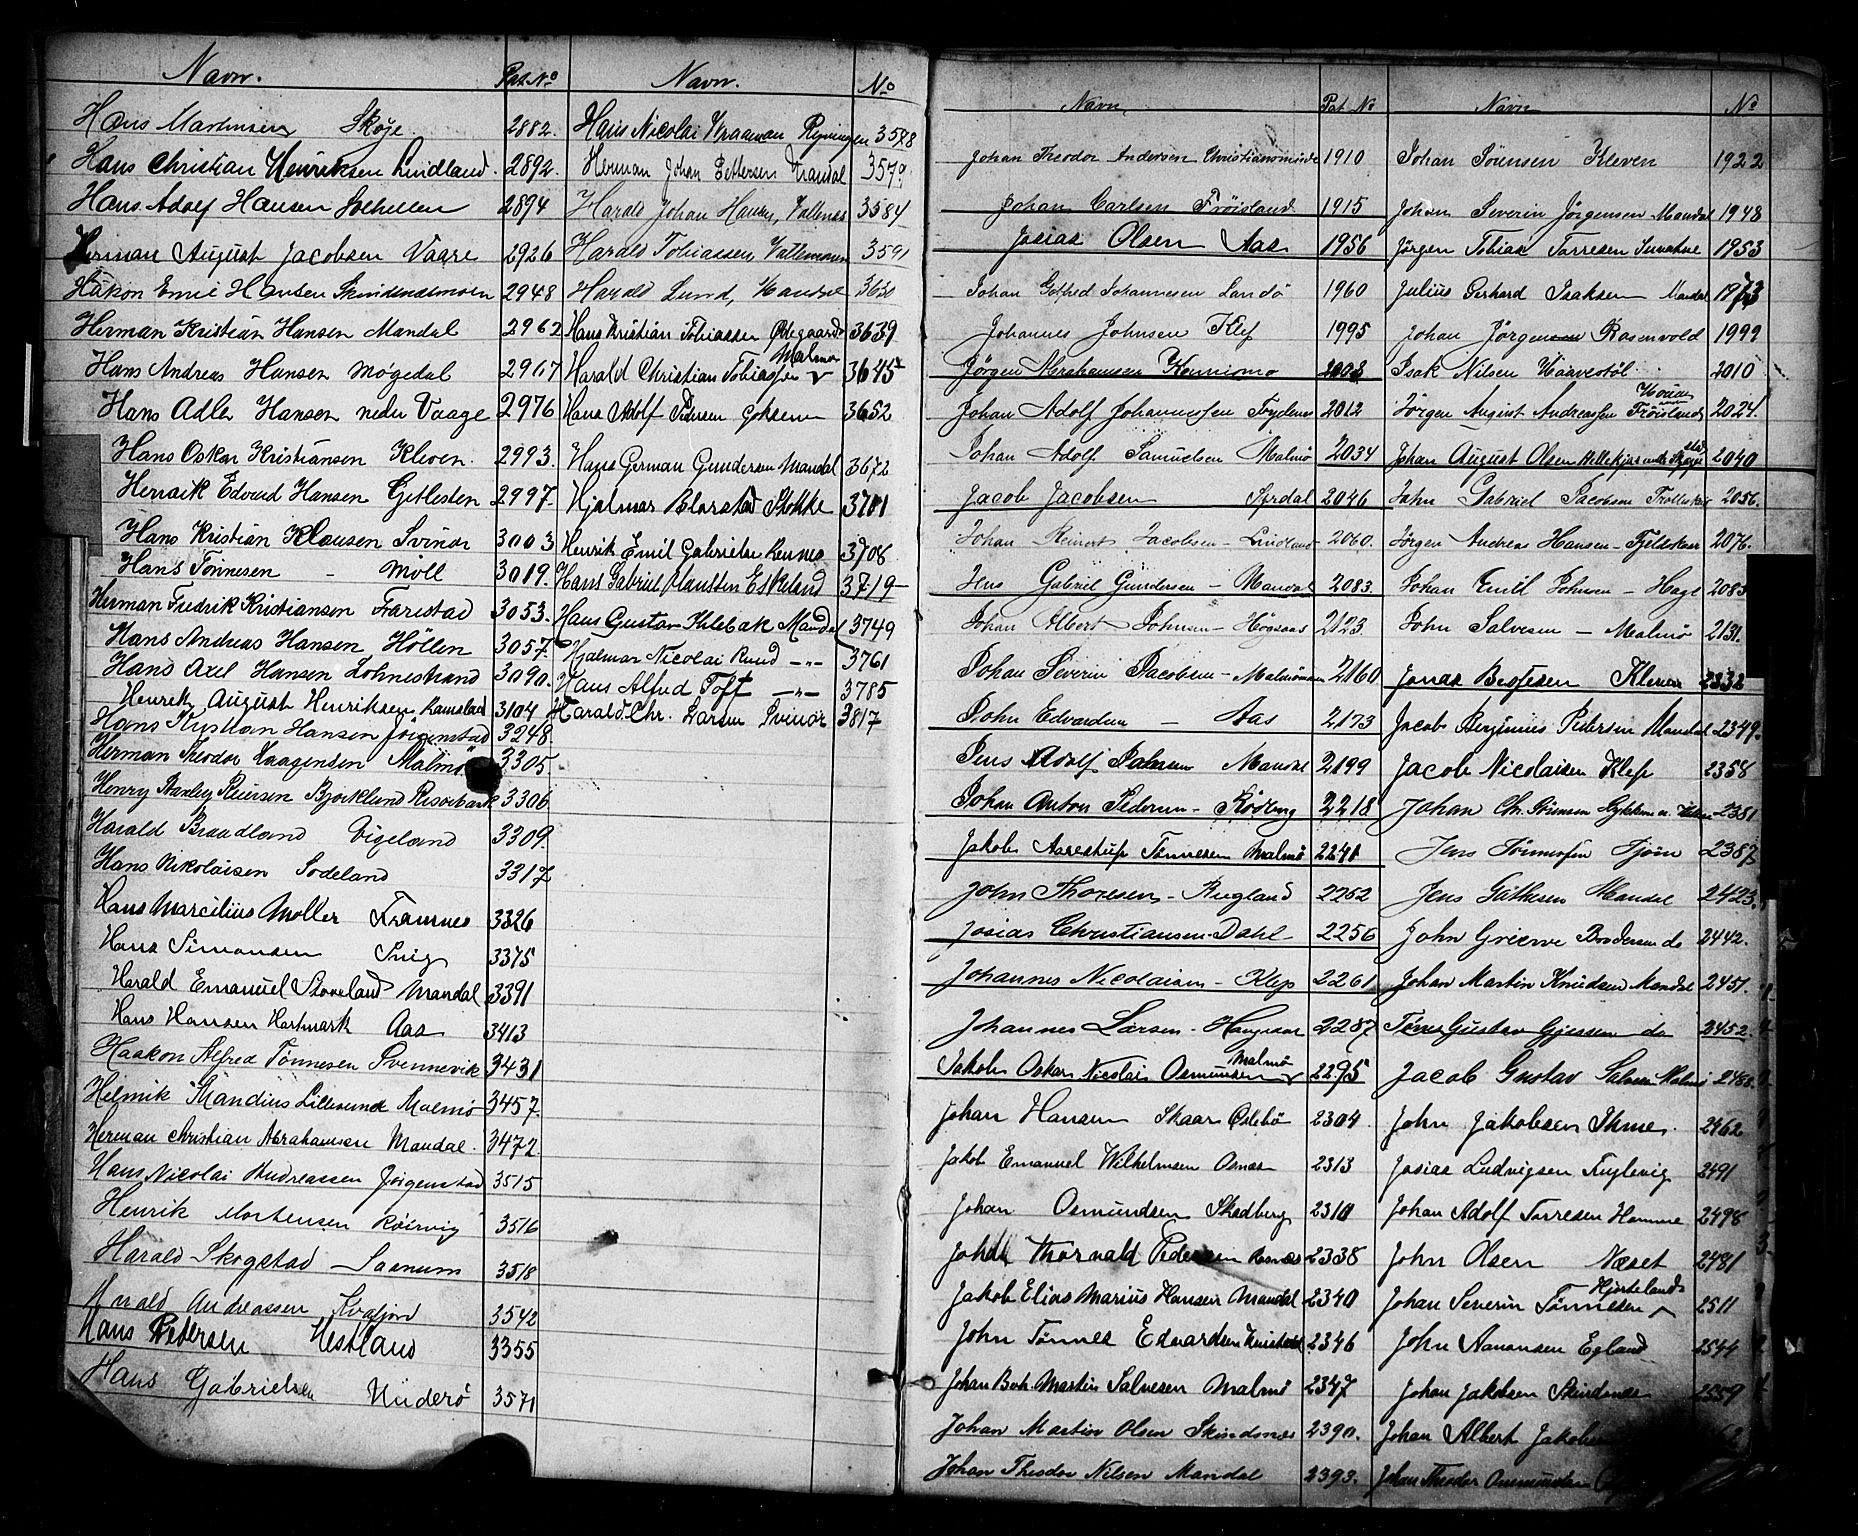 Navn. Pat No
Hans Martinsen Skøje 2882.
Hans Christian Henriksen Lindland. 2892.
Hans Adolf Hansen 2894
Herman August Jacobsen Vaare 2926
Håkon Emil Hansen 2948
Herman Kristian Hansen Mandal 2962
Hans Andreas Hansen Møgedal 2967
Hans Adler Hansen nedre Vaage 2976
Hans Oskar Kristiansen Kleven. 2993.
Henrik Edvard Hansen Gitlesten 2997.
Hans Kristian Klausen Svinør 3003
Hans Tønnesen - Moll 3019.
Herman Fredrik Kristiansen Farestad 3053.
Hans Andreas Hansen Höllen 3057.
Hans Axel Hansen Lohnestrand 3090.
Henrik August Henriksen Ramsland 3104
Hans Kristian Hansen Jörgenstad 3248.
Herman Theodor Haagensen Malmö 3305.
Henry Stanley Reiersen Bjorklund Risørbank 3306
Harald Braadland Vigeland 3309
Hans Nikolaisen Sodeland 3317
Hans Marcilius Moller Framnes 3326
Hans Simonsen Snig 3375
Harald Emanuel Stoveland Mandal 3391
Hans Hansen Hartmark Aas 3413
Haakon Alfred Tønnesen Svennevik 3431
Helmik Mandius Lillesund Malmö 3457
Herman Christian Abrahamsen Mandal. 3472.
Hans Nicolai Andreassen Jörgenstad 3515
Henrik Mortensen Roisvig 3516
Harald Skogstad Saanum 3518
Harald Andreassen 3542
Hans Pedersen Hesland 3355
Hans Gabrielsen Underö 3571
Navn. No
Hans Nicolai 3578
Herman Johan Pettersen Mandal 3579
Harald Johan Hansen, 3584
Harald Tobiassen, 3591
Harald Lund, Mandal 3630
Hans Kristian Tobiassen Ødegaard 3639
Malmø
Harald Christian Tobiassen v 3645
Hans Adolf Pedersen 3652
Hans German Gundersen Mandal 3672
Hjalmar Stokke 3701
Henrik Emil Gabrielsen 3708
Hans Gabriel Eskeland 3719
Hans Gustav Mandal 3749
Hjalmar Nicolai Ruud -"- 3761
Hans Alfred Toft -"- 3785
Harald Chr. Larsen Svinør 3817
Navn Pat No
Johan Theodor Andersen Christiansminde 1910
Johan Carlsen Frøisland 1915
Josias Olsen Aas 1956
Johan Gotfred Johannesen Landö 1960
Johannes Johnsen Klef 1995
Jørgen Abrahamsen 2003
Johan Adolf Johannessen 2012
Johan Adolf Samuelsen Malmö 2034
Jacob Jacobsen Syrdal 2046
Johan Reinert Jacobsen - Lindland 2060.
Jens Gabriel Gundersen - Mandal 2083.
Johan Albert Johnsen - Høgsaas 2123.
Johan Severin Jacobsen - 2160
John Edvardsen - Aas 2173
Jens Adolf Mandal 2199
Johan Anton Pedersen - 2218
Jakob Aarestrup Tønnesen Malmö 2241
John Thoresen - Rugland 2252
Josias Christiansen - Dahl 2256
Johannes Nicolaisen - Klep 2261
Johannes Larsen - 2287
Malmö
Jakob Oskar Nicolai Osmundsen v 2295
Johan Hansen Skaar Oslebö 2304
Jakob Emanuel Wilhelmsen 2313
Johan Osmundsen Skadberg 2310
Johan Thorvald Pedersen 2338
Jakob Elias Marius Hansen Mandal 2340
John Tønnes Edvardsen 2346
Johan Martin Salvesen Malmö 2347
Johan Martin Olsen Skindsnes 2390.
Johan Theodor Nilsen Mandal 2393.
Navn No
Johan Sörensen Kleven 1922
Johan Severin Jørgensen Mandal 1948
Jørgen Tobias Torresen 1953
Julius Gerhard Isaksen Mandal 1973
Johan Jörgensen Rosenvold 1999
Isak Nilsen Haavestöl 2010
Jørgen August Andreassen Frøisland 2024.
Johan August Olsen 2040
John Gabriel Jacobsen 2056.
Jørgen Andreas Hansen - Fjeldskar 2076.
Johan Emil Johnsen - Hage 2083
John Salvesen - Malmö 2131.
Jonas Kleven 2332
Jacob Benjimius Pedersen Mandal 2349.
Jacob Nicolaisen Klep 2358
Johan Chr. Sörensen 2381
Jens Tönnesen Tjöm 2387
Jens Mandal 2423.
John Grieve Brodersen do 2442.
Johan Martin Knudsen Mandal 2451.
Gustav Gjessen do 2452.
Jacob Gustav Malmö
John Jakobsen Ihme. 2462
Josias Ludvigsen Fuglevig 2491
Johan Adolf Torresen Homme 2498
John Olsen Næset 2481
Hjorteland
Johan Severin Tönnesen 2511
John Aanonsen Egland 2544
Johan Jakobsen Skindsnes 2559
Johan Albert
Johan Theodor Osmundsen